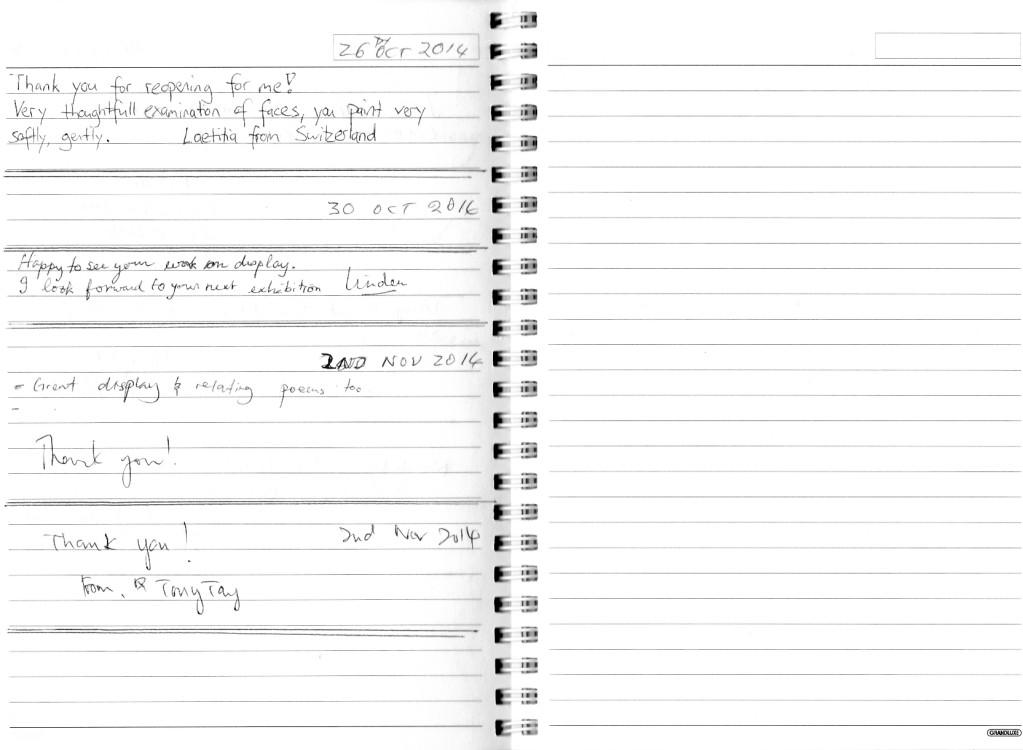 26 Oct 2014
Thank you for reopening for me!
Very thoughtfull examination of faces, you paint very
softly, gently. Laetitia from Switzerland
30 OCT 2014
Happy to see your work on display.
I look forward to your next exhibition Linden
2ND NOV 2014
- Great display & relating poems too
-
Thank you!
Thank you! 2nd Nov 2014
From, Tony Tay
GRANDLUXE